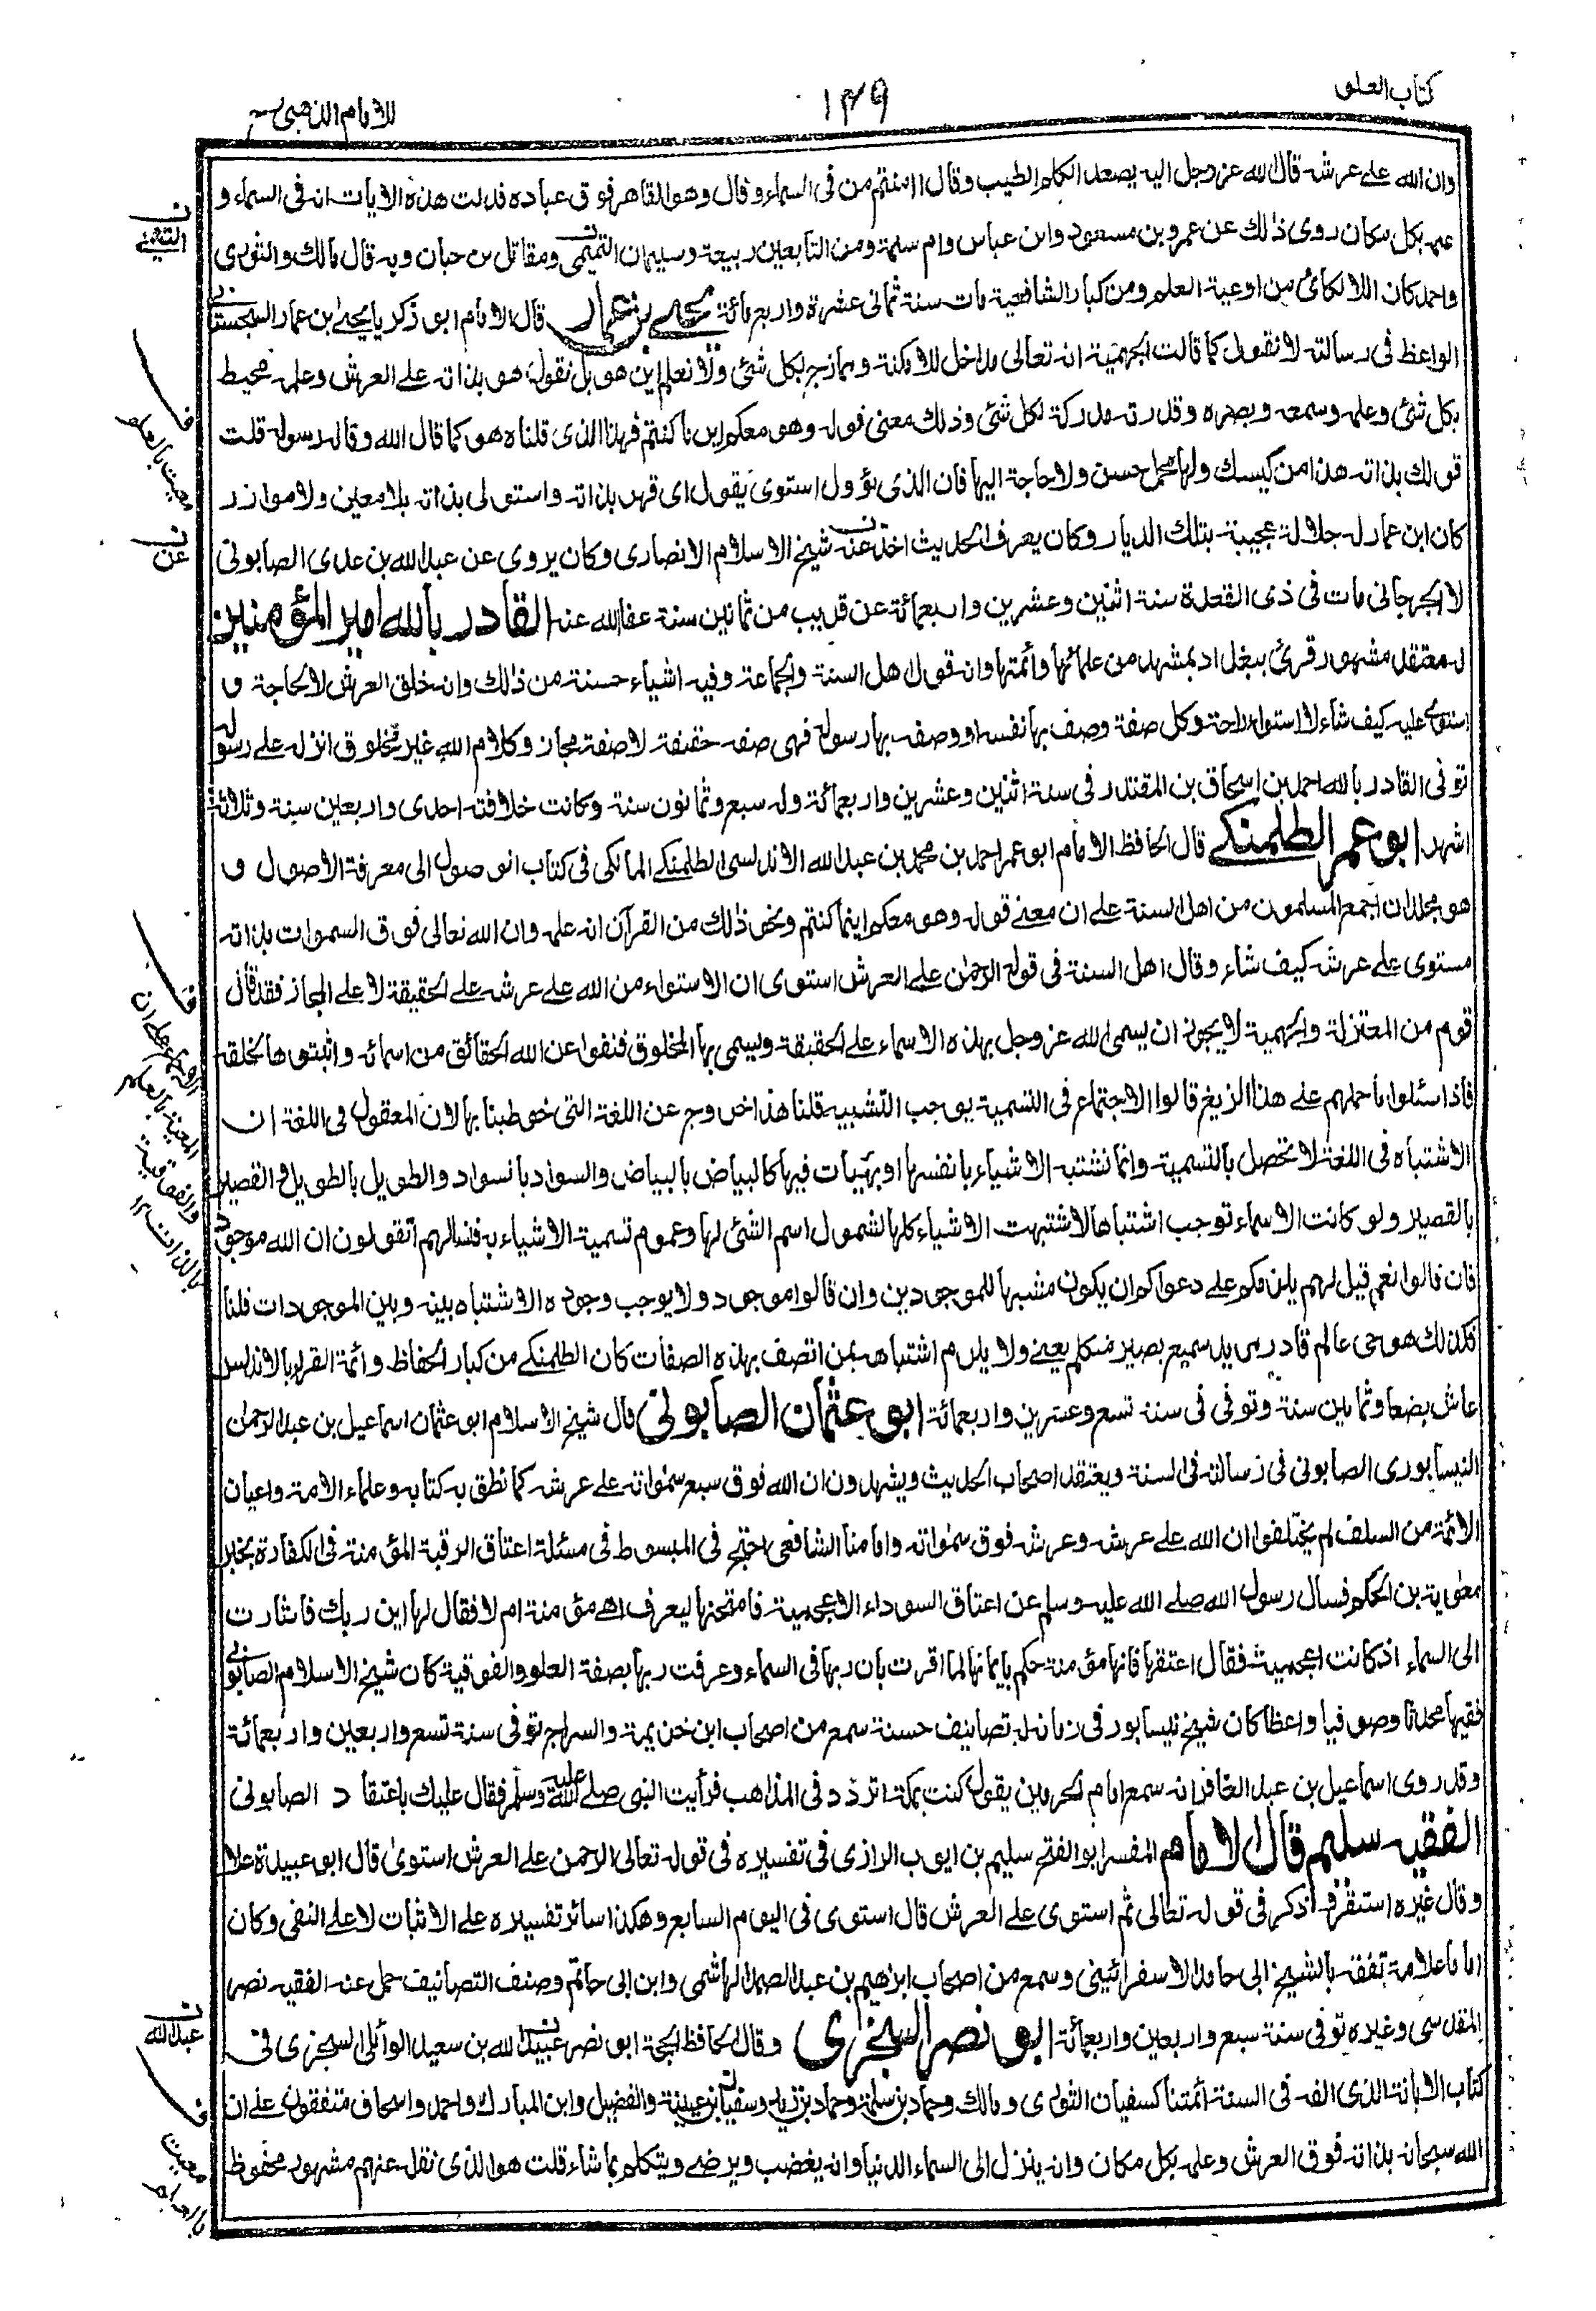 كتاب العلو
١٤٩
للامام الذهبى
وان الله على عرشه قال الله عز وجل اليه يصعد الكلم الطيب وقال اامنتم من فى السماء وقال وهو القاهر فوق عباده فدلت هذه الايات انه فى السماء و
علمه بكل مكان روى ذلك عن عمر وبن مسعود وابن عباس وام سلمة ومن التابعين ربيعة وسليمان التميمى ومقاتل بن حبان وبه قال مالك والثورى
واحمد كان اللالكائى من اوعية العلم ومن كبار الشافعية مات سنة ثمانى عشرة واربع مائة يحيى بن عمار قال الامام ابو زكريا يحيى بن عمار السجستانى
الواعظ فى رسالته لا نقول كما قالت الجهمية انه تعالى مداخل للامكنة وممازج لكل شئ ولا نعلم اين هو بل نقول هو بذاته على العرش وعلمه محيط
بكل شئ وعلمه وسمعه وبصره وقدرته مدركة لكل شئ وذلك معنى قوله وهو معكم اين ما كنتم فهذا الذى قلناه هو كما قال الله وقاله رسوله قلت
قولك بذاته هذا من كيسك ولها محمل حسن ولا حاجة اليها فان الذى يؤول استوى يقول اى قهر بذاته واستولى بذاته بلا معين ولا موازر
كان ابن عمار له جلالة عجيبة بتلك الديار وكان يعرف الحديث اخذ عنه شيخ الاسلام الانصارى وكان يروى عن عبد الله بن عدى الصابونى
لا الجرجانى مات فى ذى القعدة سنة اثنين وعشرين واربعمائة عن قريب من ثمانين سنة عفا الله عنه القادر بالله امير المؤمنين
له معتقد مشهور قرئ ببغداد بمشهد من علمائها وأئمتها وانه قول اهل السنة والجماعة وفيه اشياء حسنة من ذلك وانه خلق العرش لا لحاجة و
استوى عليه كيف شاء لا استواء راحة وكل صفة وصف بها نفسه او وصفه بها رسوله فهى صفة حقيقة لا صفة مجاز وكلام الله غير مخلوق انزله على رسوله
توفى القادر بالله احمد بن اسحاق بن المقتدر فى سنة اثنين وعشرين واربعمائة وله سبع وثمانون سنة وكانت خلافته احدى واربعين سنة وثلاثة
اشهر ابو عمر الطلمنكى قال الحافظ الامام ابو عمر احمد بن محمد بن عبد الله الاندلسى الطلمنكى المالكى فى كتاب الوصول الى معرفة الاصول و
هو مجلدان اجمع المسلمون من اهل السنة على ان معنى قوله وهو معكم اينما كنتم ونحو ذلك من القرآن انه علمه وان الله تعالى فوق السموات بذاته
مستوى على عرشه كيف شاء وقال اهل السنة فى قوله الرحمن على العرش استوى ان الاستواء من الله على عرشه على الحقيقة لا على المجاز فقد قال
قوم من المعتزلة والجهمية لا يجوز ان يسمى الله عز وجل بهذه الاسماء على الحقيقة ويسمى بها المخلوق فنفوا عن الله الحقائق من اسمائه واثبتوها لخلقه
فاذا سئلوا ما حملهم على هذا الزيغ قالوا الاجتماع فى التسمية يوجب التشبيه قلنا هذا خروج عن اللغة التى خوطبنا بها لان المعقول فى اللغة ان
الاشتباه فى اللغة لا تحصل بالتسمية وانما تشتبه الاشياء بانفسها او بهيئات فيها كالبياض بالبياض والسواد بالسواد والطويل بالطويل والقصير
بالقصير ولو كانت الاسماء توجب اشتباها لاشتبهت الاشياء كلها لشمول اسم الشئ لها وعموم تسمية الاشياء به فنسألهم أتقولون ان الله موجود
فان قالوا نعم قيل لهم يلزمكم على دعواكم ان يكون مشبها للموجودين وان قالوا موجود ولا يوجب وجوده الاشتباه بينه وبين الموجودات قلنا
فكذلك هو حى عالم قادر مريد سميع بصير متكلم يعنى ولا يلزم اشتباهه بمن اتصف بهذه الصفات كان الطلمنكى من كبار الحفاظ وائمة القراء بالاندلس
عاش بضعا وثمانين سنة وتوفى فى سنة تسع وعشرين واربعمائة ابو عثمان الصابونى قال شيخ الاسلام ابو عثمان اسماعيل بن عبد الرحمن
النيسابورى الصابونى فى رسالته فى السنة ويعتقد اصحاب الحديث ويشهدون ان الله فوق سبع سمواته على عرشه كما نطق به كتابه وعلماء الامة واعيان
الائمة من السلف لم يختلفوا ان الله على عرشه وعرشه فوق سمواته وامامنا الشافعى احتج فى المبسوط فى مسئلة اعتاق الرقبة المؤمنة فى الكفارة بخبر
معوية بن الحكم فسال رسول الله صلى الله عليه وسلم عن اعتاق السوداء الاعجمية فامتحنها ليعرف اهى مؤمنة ام لا فقال لها اين ربك فاشارت
الى السماء اذ كانت اعجمية فقال اعتقها فانها مؤمنة حكم بايمانها لما اقرت بان ربها فى السماء وعرفت ربها بصفة العلو والفوقية كان شيخ الاسلام الصابونى
فقيها محدثا وصوفيا واعظا كان شيخ نيسابور فى زمانه له تصانيف حسنة سمع من اصحاب ابن خزيمة والسراج توفى سنة تسع واربعين واربعمائة
وقد روى اسماعيل بن عبد الغافر انه سمع امام الحرمين يقول كنت بمكة اتردد فى المذاهب فرأيت النبى صلى الله عليه وسلم فقال عليك باعتقاد الصابونى
الفقيه سليم قال الامام المفسر ابو الفتح سليم بن ايوب الرازى فى تفسيره فى قوله تعالى الرحمن على العرش استوى قال ابو عبيدة علا
وقال غيره استقر وذكر فى قوله تعالى ثم استوى على العرش قال استوى فى اليوم السابع وهكذا سائر تفسيره على الاثبات لا على النفى وكان
اماما علامة تفقه بالشيخ ابى حامد الاسفرائينى وسمع من اصحاب ابراهيم بن عبد الصمد الهاشمى وابن ابى حاتم وصنف التصانيف حمل عنه الفقيه نصر
المقدسى وغيره توفى سنة سبع واربعين واربعمائة ابو نصر السجزى وقال الحافظ الحجة ابو نصر عبيد الله بن سعيد الوائلى السجزى فى
كتاب الابانة الذى الفه فى السنة أئمتنا كسفيان الثورى ومالك وحماد بن سلمة وحماد بن زيد وسفيان بن عيينة والفضيل وابن المبارك واحمد واسحاق متفقون على ان
الله سبحانه بذاته فوق العرش وعلمه بكل مكان وانه ينزل الى السماء الدنيا وانه يغضب ويرضى ويتكلم بما شاء قلت هو الذى نقل عنهم مشهور محفوظ
ن
التيمى
ف
معيت بالعلم
ن
عن
ف
الاجماع على ان
المعية بالعلم
والفوقية
بالذات ١٢
ن
عبد الله
ف
معيت
بالعلم